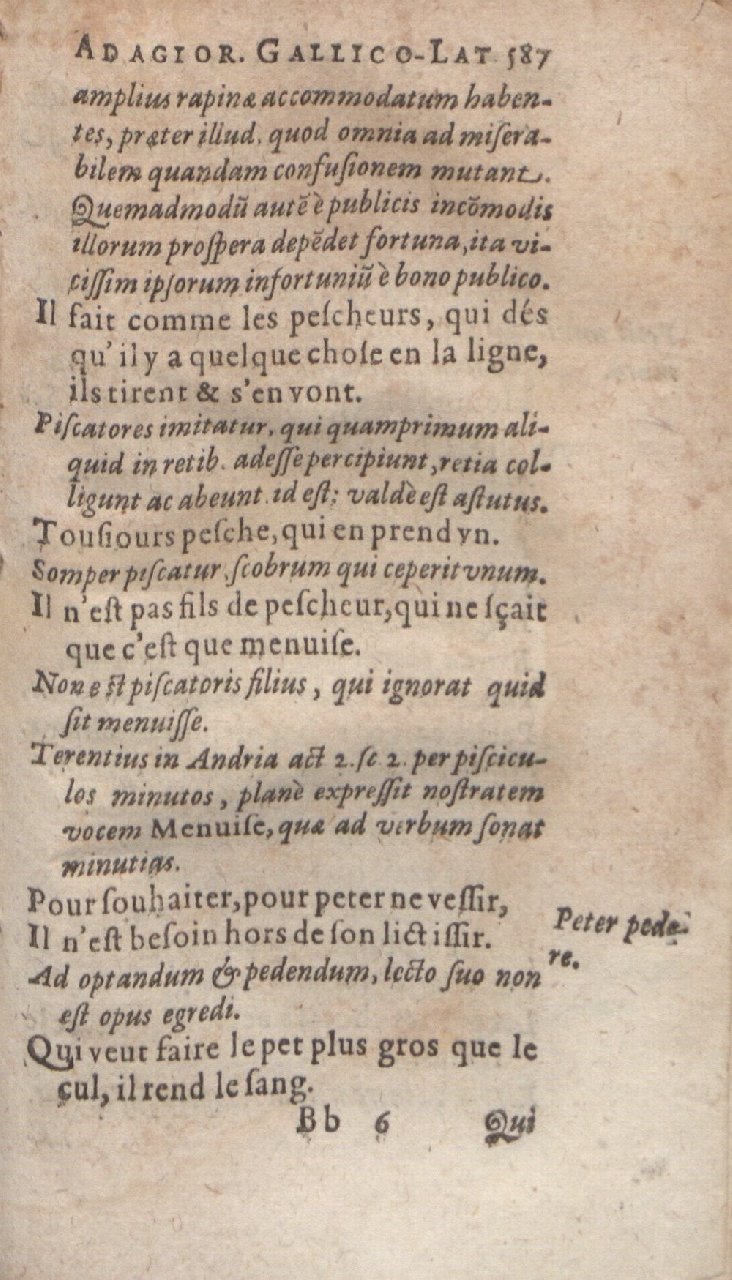 ADAGIOR. GALLICO-LAT 587
amplius rapinæ accommodatum haben-
tes, præter illud, quod omnia ad miſera-
bilem quandam confuſionem mutant.
Quemadmodū autē è publicis incōmodis
illorum proſpera depēdet fortuna, ita vi-
ciſſim ipſorum infortuniū è bono publico.
Il fait comme les peſcheurs, qui dés
qu'il y a quelque choſe en la ligne,
ils tirent & s'en vont.
Piſcatores imitatur, qui quamprimum ali-
quid in retib. adeſſe percipiunt, retia col-
ligunt ac abeunt. id eſt; valdè eſt aſtutus.
Touſiours peſche, qui en prend vn.
Somper piſcatur, ſcobrum qui ceperit vnum.
Il n'eſt pas fils de peſcheur, qui ne ſçait
que c'eſt que menuiſe.
Non eſt piſcatoris filius, qui ignorat quid
ſit menuiſſe.
Terentius in Andria act 2. ſc 2. per piſcicu-
los minutos, planè expreſſit noſtratem
vocem Menuiſe, quæ ad verbum ſonat
minutias.
Pour ſouhaiter, pour peter ne veſſir,
Il n'eſt beſoin hors de ſon lict iſſir.
Peter pede-
re.
Ad optandum & pedendum, lecto ſuo non
eſt opus egredi.
Qui veut faire le pet plus gros que le
çul, il rend le ſang.
Bb 6 Qui